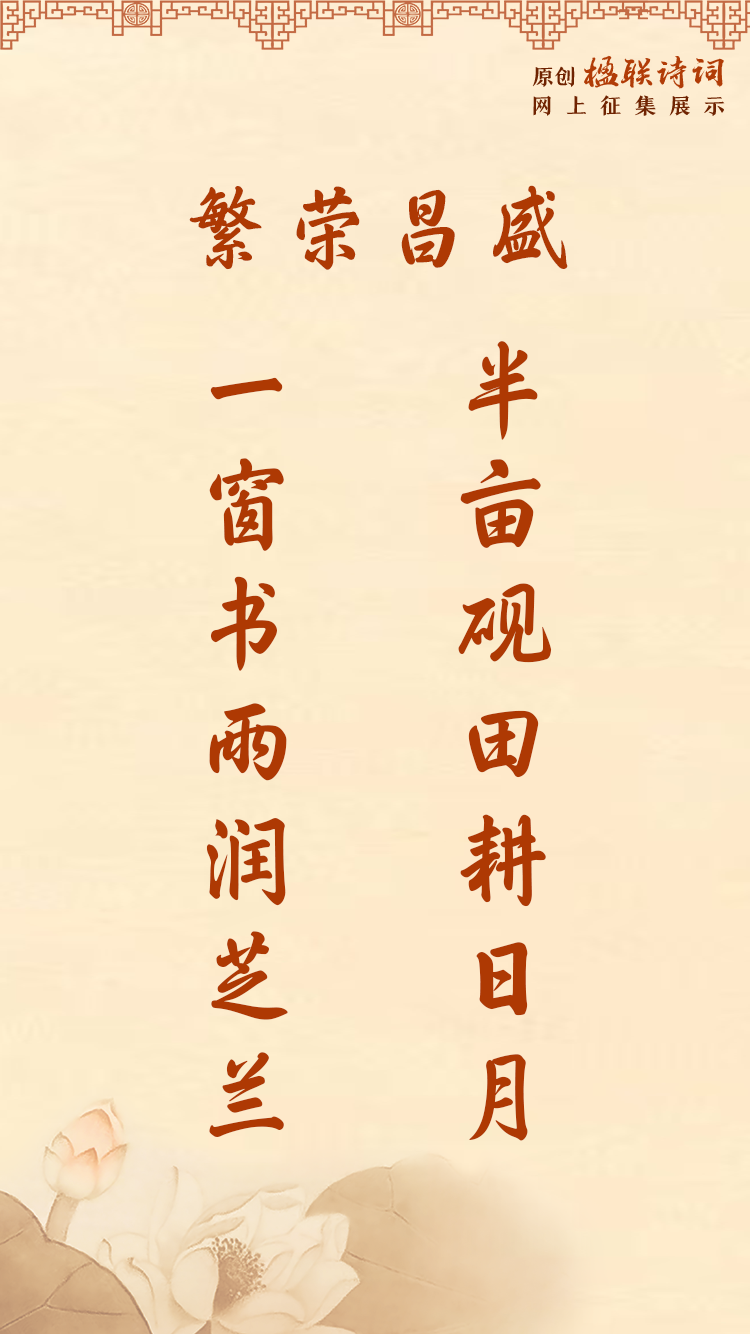 原创楹联诗词
网上征集展示
繁荣昌盛
半亩砚田耕日月
一窗书雨润芝兰